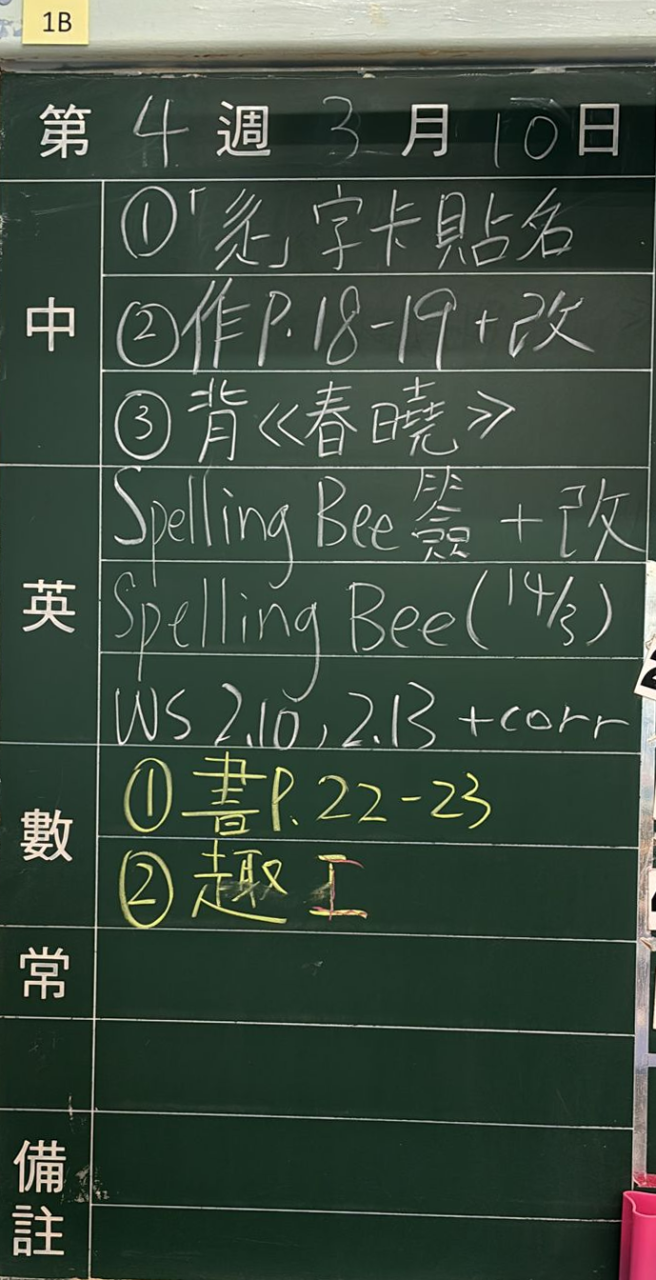 1B
第 4 週 3 月 10 日
中
①「 」字卡貼名
②作P.18-19+改
③背《春曉》
英
Spelling Bee 簽 + 改
Spelling Bee (14/3)
WS 2.10, 2.13 +corr
數
①書P.22-23
②趣 工
常
備註